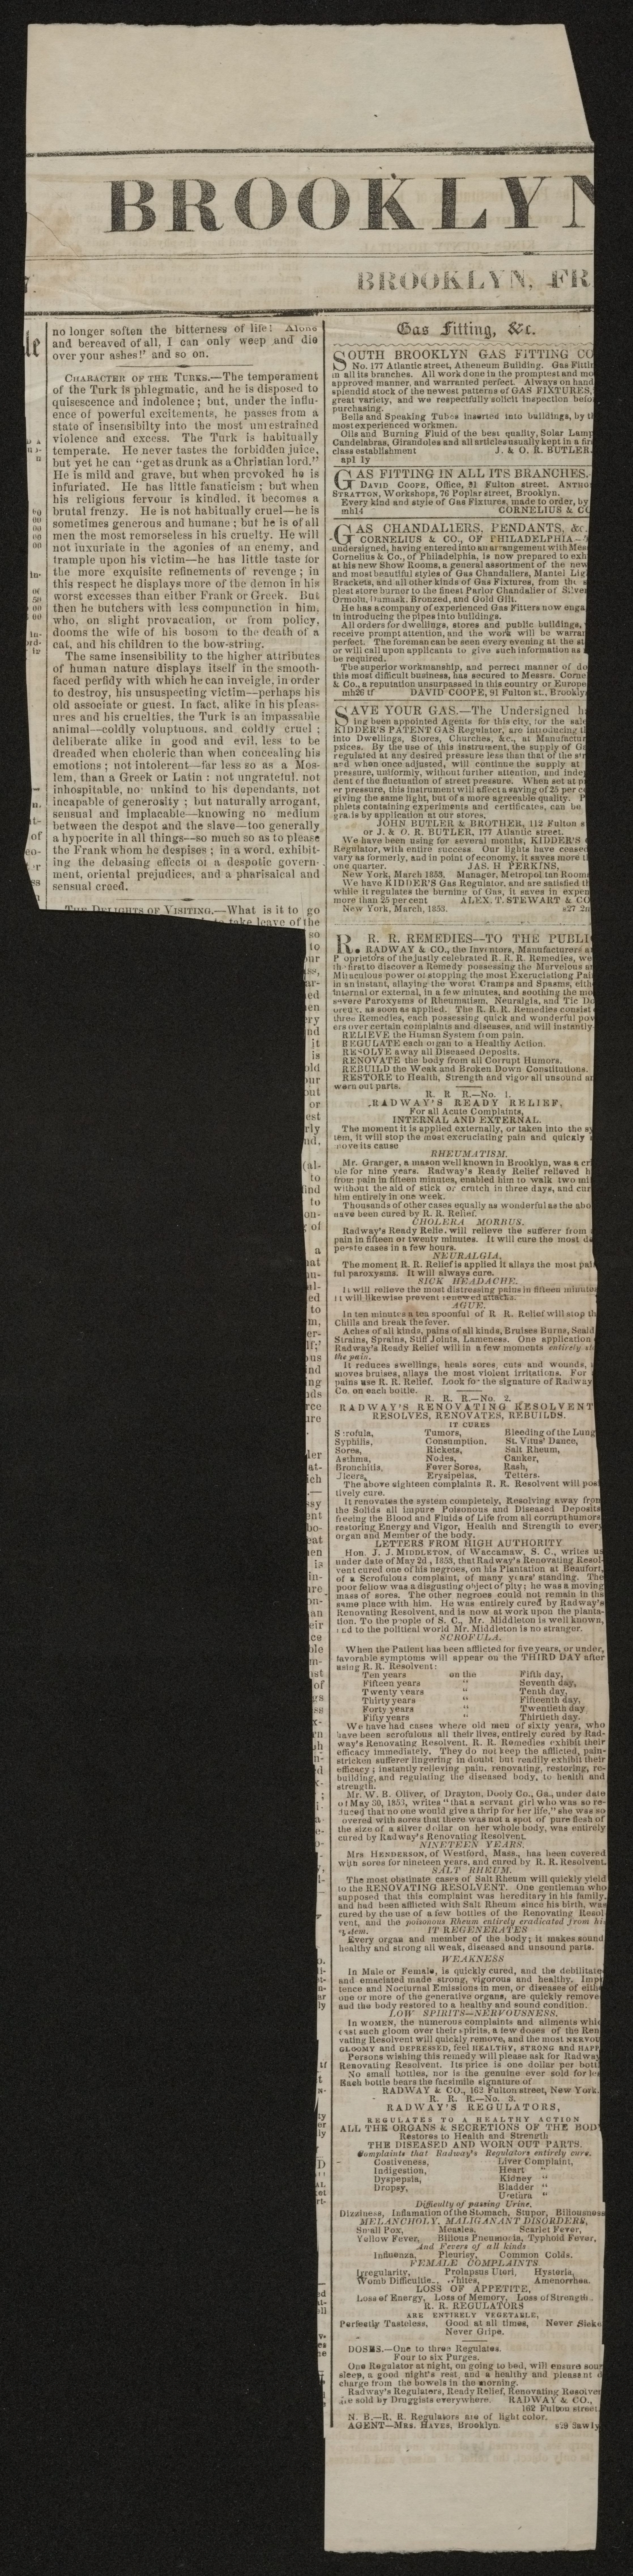 BROOKLYN
BROOKLYN, FR
no longer soften the bitterness of life! Alone
and bereaved of all, I can only weep and die
over your ashes!' and so on.
CHARACTER OF THE TURKS.—The temperament
of the Turk is phlegmatic, and he is disposed to
quiescence and indolence; but, under the influ-
ence of powerful excitements, he passes from a
state of insensibilty into the most unrestrained
violence and excess. The Turk is habitually
temperate. He never tastes the forbidden juice,
but yet he can "get as drunk as a Christian lord."
He is mild and grave, but when provoked he is
infuriated. He has little fanaticism; but when
his religious fervour is kindled, it becomes a
brutal frenzy. He is not habitually cruel—he is
sometimes generous and humane; but he is of all
men the most remorseless in his cruelty. He will
not luxuriate in the agonies of an enemy, and
trample upon his victim—he has little taste for
the more exquisite refinements of revenge; in
this respect he displays more of the demon in his
worst excesses than either Frank or Greek. But
then he butchers with less compunction in him,
who, on slight provocation, or from policy,
dooms the wife of his bosom to the death of a
cat, and his children to the bow-string.
The same insensibility to the higher attributes
of human nature displays itself in the smooth-
faced perfidy with which he can inveigle, in order
to destroy, his unsuspecting victim—perhaps his
old associate or guest. In fact, alike in his pleas-
ures and his cruelties, the Turk is an impassable
animal—coldly voluptuous, and coldly cruel;
deliberate alike in good and evil, less to be
dreaded when choleric than when concealing his
emotions; not intolerent—far less so as a Mos-
lem, than a Greek or Latin: not ungrateful, not
inhospitable, nor unkind to his dependants, not
incapable of generosity; but naturally arrogant,
sensual and implacable—knowing no medium
between the despot and the slave—too generally
a hypocrite in all things—so much so as to please
the Frank whom he despises; in a word, exhibit-
ing the debasing effects of a despotic govern-
ment, oriental prejudices, and a pharisaical and
sensual creed.
THE DELIGHTS OF VISITING.—What is it to go
take leave of the
Gas Fitting, &c.
SOUTH BROOKLYN GAS FITTING CO
No. 177 Atlantic street, Atheneum Building. Gas Fittin
in all its branches. All work done in the promptest and mo
approved manner, and warranted perfect. Always on hand
splendid stock of the newest patterns of GAS FIXTURES,
great variety, and we respectfully solicit inspection befo
purchasing.
Bells and Speaking Tubes inserted into buildings, by th
most experienced workmen.
Oils and Burning Fluid of the best quality, Solar Lamp
Candelabras, Girandoles and all articles usually kept in a fir
class establishment J. & O. R. BUTLER.
ap1 1y
GAS FITTING IN ALL ITS BRANCHES.
DAVID COOPE, Office, 91 Fulton street. ANTHO
STRATTON, Workshops, 76 Poplar street, Brooklyn.
Every kind and style of Gas Fixtures, made to order, by
mh14 CORNELIUS & CO
GAS CHANDALIERS, PENDANTS, &c.
CORNELIUS & CO., OF PHILADELPHIA—
undersigned, having entered into an arrangement with Mes
Cornelius & Co., of Philadelphia, is now prepared to exh
at his new Show Rooms, a general assortment of the new
and most beautiful styles of Gas Chandaliers, Mantel Lig
Brackets, and all other kinds of Gas Fixtures, from the s
plest store burner to the finest Parlor Chandalier of Silver
Ormolu, Damask, Bronzed, and Gold Gilt.
He has a company of experienced Gas Fitters now enga
in introducing the pipes into buildings.
All orders for dwellings, stores and public buildings,
receive prompt attention, and the work will be warran
perfect. The foreman can be seen every evening at the st
or will call upon applicants to give such information as
be required.
The superior workmanship, and perrect manner of do
this most difficult business, has secured to Messrs. Corne
& Co., a reputation unsurpassed in this country or Europe
mh26 tf DAVID COOPE, 91 Fulton st., Brookly
SAVE YOUR GAS.—The Undersigned h
ing been appointed Agents for this city, for the sale
KIDDER'S PATENT GAS Regulator, are introducing t
into Dwellings, Stores, Churches, &c., at Manufactur
prices. By the use of this instrument, the supply of Ga
regulated at any desired pressure less than that of the str
and when once adjusted, will continue the supply at
pressure, uniformly, without further attention, and indep
dent of the fluctuation of street pressure. When set at p
er pressure, this instrument will affect a saving of 25 per ce
giving the same light, but of a more agreeable quality. P
phlets containing experiments and certificates, can be
gratis by application at our stores,
JOHN BUTLER & BROTHER, 112 Fulton s
or J. & O. R. BUTLER, 177 Atlantic street.
We have been using for several months, KIDDER'S
Regulator, with entire success. Our lights have ceased
vary as formerly, and in point of economy, it saves more t
one quarter. JAS. H. PERKINS,
New York, March 1853. Manager, Metropolitan Room
We have KIDDER'S Gas Regulator, and are satisfied th
while it regulates the burning of Gas, it saves in expen
more than 25 per cent ALEX. T. STEWART & CO
New York, March, 1853. s27 2n
R. R. R. REMEDIES—TO THE PUBLI
RADWAY & CO., the Inventors, Manufacturers a
Proprietors of the justly celebrated R. R. R. Remedies, we
th first to discover a Remedy possessing the Marvelous a
Miraculous power of stopping the most Excruciating Pai
in an instant, allaying the worst Cramps and Spasms, eith
internal or external, in a few minutes, and soothing the mo
severe Paroxysms of Rheumatism, Neuralgia, and Tic Do
oreux, as soon as applied. The R. R. R. Remedies consist
three Remedies, each possessing quick and wonderful pow
ers over certain complaints and diseases, and will instantly
RELIEVE the Human System from pain.
REGULATE each organ to a Healthy Action.
RESOLVE away all Diseased Deposits.
RENOVATE the body from all Corrupt Humors.
REBUILD the Weak and Broken Down Constitutions.
RESTORE to Health, Strength and vigor all unsound an
worn out parts.
R. R. R.—No. 1.
RADWAY'S READY RELIEF,
For all Acute Complaints,
INTERNAL AND EXTERNAL.
The moment it is applied externally, or taken into the sy
tem, it will stop the most excruciating pain and quickly
move its cause
RHEUMATISM.
Mr. Granger, a mason well known in Brooklyn, was a cri
ble for nine years. Radway's Ready Relief relieved h
from pain in fifteen minutes, enabled him to walk two mil
without the aid of stick or crutch in three days, and cur
him entirely in one week.
Thousands of other cases equally as wonderful as the abo
have been cured by R. R. Relief.
CHOLERA MORBUS.
Radway's Ready Relief will relieve the sufferer from
pain in fifteen or twenty minutes. It will cure the most de
perate cases in a few hours.
NEURALGIA.
The moment R. R. Relief is applied it allays the most pai
ful paroxysms. It will always cure.
SICK HEADACHE.
It will relieve the most distressing pains in fifteen minutes
It will likewise prevent renewed attacks.
AGUE.
In ten minutes a tea spoonful of R R. Relief will stop th
Chills and break the fever.
Aches of all kinds, pains of all kinds, Bruises Burns, Scald
Strains, Sprains, Stiff Joints, Lameness. One application
Radway's Ready Relief will in a few moments entirely sto
the pain.
It reduces swellings, heals sores, cuts and wounds,
moves bruises, allays the most violent irritations. For
pains use R. R. Relief. Look for the signature of Radway
Co. on each bottle.
R. R. R.—No. 2.
RADWAY'S RENOVATING RESOLVENT
RESOLVES, RENOVATES, REBUILDS.
IT CURES
Scrofula, Tumors, Bleeding of the Lung
Syphilis, Consumption, St. Vitus' Dance,
Sores, Rickets, Salt Rheum,
Asthma, Nodes, Canker,
Bronchitis, Fever Sores, Rash,
Ulcers, Erysipelas, Tetters.
The above eighteen complaints R. R. Resolvent will posi
tively cure.
It renovates the system completely, Resolving away from
the Solids all impure Poisonous and Diseased Deposits
freeing the Blood and Fluids of Life from all corrupt humors
restoring Energy and Vigor, Health and Strength to every
organ and Member of the body.
LETTERS FROM HIGH AUTHORITY
Hon. J. J. MIDDLETON, of Waccamaw, S. C., writes us
under date of May 2d, 1853, that Radway's Renovating Resol-
vent cured one of his negroes, on his Plantation at Beaufort,
of a Scrofulous complaint, of many years' standing. The
poor fellow was a disgusting object of pity; he was a moving
mass of sores. The other negroes could not remain in the
same place with him. He was entirely cured by Radway's
Renovating Resolvent, and is now at work upon the planta-
tion. To the people of S. C., Mr. Middleton is well known,
and to the political world Mr. Middleton is no stranger.
SCROFULA.
When the Patient has been afflicted for five years, or under,
favorable symptoms will appear on the THIRD DAY after
using R. R. Resolvent:
Ten years on the Fifth day,
Fifteen years " Seventh day,
Twenty years " Tenth day,
Thirty years " Fifteenth day,
Forty years " Twentieth day
Fifty years " Thirtieth day.
We have had cases where old men of sixty years, who
have been scrofulous all their lives, entirely cured by Rad-
way's Renovating Resolvent. R. R. Remedies exhibit their
efficacy immediately. They do not keep the afflicted, pain-
stricken sufferer lingering in doubt but readily exhibit their
efficacy; instantly relieving pain, renovating, restoring, re-
building, and regulating the diseased body, to health and
strength.
Mr. W. B. Oliver, of Drayton, Dooly Co., Ga., under date
of May 30, 1853, writes "that a servant girl who was so re-
duced that no one would give a thrip for her life," she was so
overed with sores that there was not a spot of pure flesh of
the size of a silver dollar on her whole body, was entirely
cured by Radway's Renovating Resolvent.
NINETEEN YEARS.
Mrs HENDERSON, of Westford, Mass., has been covered
with sores for nineteen years, and cured by R. R. Resolvent.
SALT RHEUM.
The most obstinate cases of Salt Rheum will quickly yield
to the RENOVATING RESOLVENT. One gentleman who
supposed that this complaint was hereditary in his family,
and had been afflicted with Salt Rheum since his birth, was
cured by the use of a few bottles of the Renovating Resol
vent, and the poisonous Rheum entirely eradicated from his
system.
IT REGENERATES
Every organ and member of the body; it makes sound
healthy and strong all weak, diseased and unsound parts.
WEAKNESS
In Male or Female, is quickly cured, and the debilitate
and emaciated made strong, vigorous and healthy. Imp
tence and Nocturnal Emissions in men, or diseases of eithe
one or more of the generative organs, are quickly remove
and the body restored to a healthy and sound condition.
LOW SPIRITS—NERVOUSNESS.
In WOMEN, the numerous complaints and ailments whic
cast such gloom over their spirits, a few doses of the Ren
vating Resolvent will quickly remove, and the most NERVOU
GLOOMY and DEPRESSED, feel HEALTHY, STRONG and HAPP
Persons wishing this remedy will please ask for Radway
Renovating Resolvent. Its price is one dollar per bottl
No small bottles, nor is the genuine ever sold for les
Each bottle bears the facsimile signature of
RADWAY & CO., 162 Fulton street, New York.
R. R. R.—No. 3.
RADWAY'S REGULATORS,
REGULATES TO A HEALTHY ACTION
ALL THE ORGANS & SECRETIONS OF THE BODY
Restores to Health and Strength
THE DISEASED AND WORN OUT PARTS.
Complaints that Radway's Regulators entirely cure.
Costiveness, Liver Complaint,
Indigestion, Heart "
Dyspepsia, Kidney "
Dropsy, Bladder "
Urethra "
Difficulty of passing Urine,
Dizziness, Inflamation of the Stomach, Stupor, Biliousness
MELANCHOLY, MALIGANANT DISORDERS,
Small Pox, Measles, Scarlet Fever,
Yellow Fever, Bilious Pneumonia, Typhoid Fever,
And Fevers of all kinds
Influenza, Pleurisy, Common Colds.
FEMALE COMPLAINTS
Irregularity, Prolapsus Uteri, Hysteria,
Womb Difficultie, Whites, Amenorrhea.
LOSS OF APPETITE,
Loss of Energy, Loss of Memory, Loss of Strength.
R. R. REGULATORS
ARE ENTIRELY VEGETABLE,
Perfectly Tasteless, Good at all times, Never Sicke
Never Gripe.
DOSES.—One to three Regulates.
Four to six Purges.
One Regulator at night, on going to bed, will ensure soun
sleep, a good night's rest, and a healthy and pleasant d
charge from the bowels in the morning.
Radway's Regulators, Ready Relief, Renovating Resolven
are sold by Druggists everywhere. RADWAY & CO.,
162 Fulton street.
N. B.—R. R. Regulators are of light color.
AGENT—MRS. HAYES, Brooklyn. s28 3awly